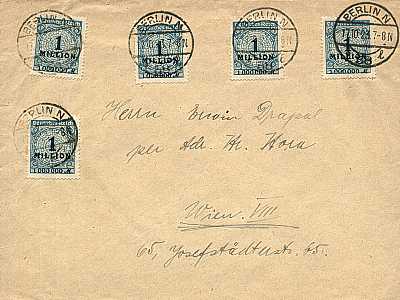 BERLIN N BERLIN N
17.10.23.7-8N
1 MILLION 1 MILLION 1 MILLION 1
1000000 M 1000000 M
BERLIN N
1
MILLION
1000000 M
Herrn Erwin Drapal
per Adr. Hr. Hora
Wien. VIII
65, Josefstädterstr. 65.